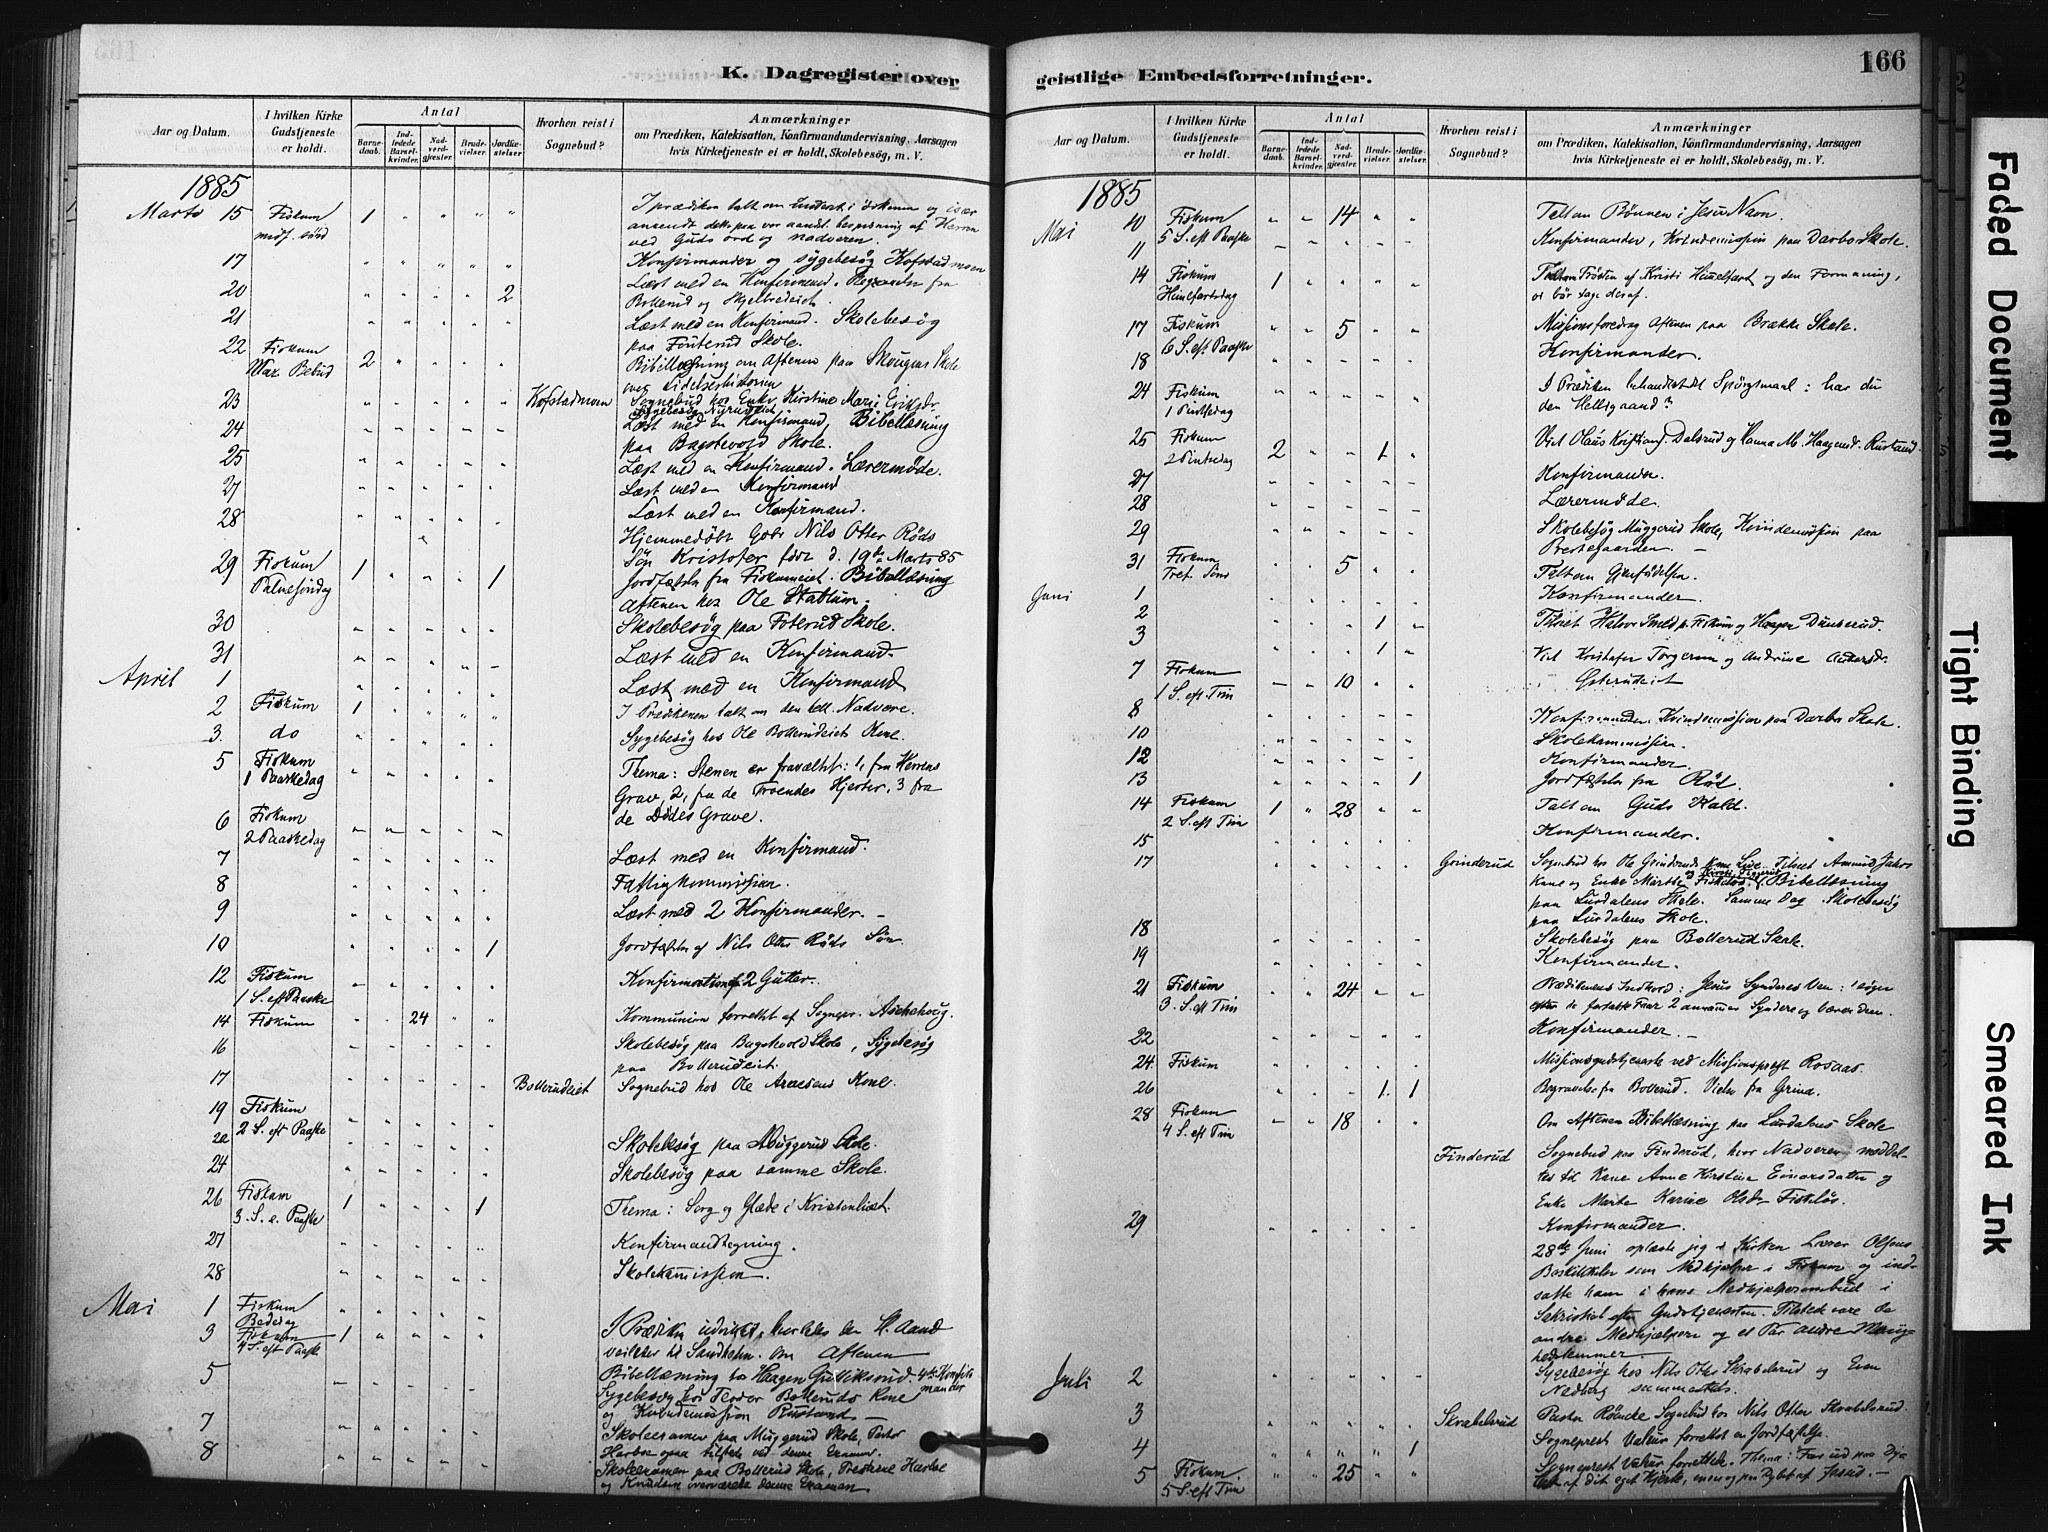 K. Dagregister over
Aar og Datum.
I hvilken Kirke Gudstjeneste er holdt.
Antal
Barnedaab.
Indledede Barselkvinder.
Nadverdgjester.
Brudevielser.
Jordfæstelser.
Hvorhen reist i Sognebud?
Anmærkninger
om Prædiken, Katekisation, Konfirmandundervisning, Aarsagen
hvis Kirketjeneste ei er holdt, Skolebesøg, m. V.
1885
Marts 15 Fiskum 1 I prædiken talt om underet i ørkenen og især
midf. sønd anvendt dette paa vor aandl. bespisning af Herren
ved Guds ord og nadveren.
17 Konfirmander og sygebesøg Kofstadmoen
20 2 Læst med en Konfirmand. fra
Bollerud og Skjelbredeiet.
21 Læst med en Konfirmand. Skolebesøg
paa Fouterud Skole.
22 Fiskum 2 Bibellæsning om Aftenen paa Skougens Skole
Mar Bebud over Lidelseshistorien
23 Kofstadmoen Sognebud hos Enke Kirstine Marie Eriksdr.
Sygebesøg
24 Læst med en Konfirmand, Bibellæsning
paa Bagstevold Skole.
25 Læst med en Konfirmand. Lærermøde.
27 Læst med en Konfirmand
28 Læst med en Konfirmand.
Hjemmedøbt Gbr Nils Otter Røds
Søn Kristofer født d. 19de Marts 85
29 Fiskum 1 1 Jordfæstelse fra Fiskumeiet. Bibellæsning
Palmesøndag Aftenen hos Ole Stablum.
30 Skolebesøg paa Foterud Skole.
31 Læst med en Konfirmand.
April 1 Læst med en Konfirmand
2 Fiskum 1 I Prædikenen talt om den hell. Nadvere.
3. do Sygebesøg hos Ole Bollerudeiets Kone.
5 Fiskum Thema: Stenen er fravæltet: 1, fra Herrens
1 Paaskedag Grav, 2, fra de Troendes Hjerter, 3 fra
6 Fiskum de Dødes Grave.
2 Paaskedag
7 Læst med en Konfirmand.
8 Fattigkommission.
9 Læst med 2 Konfirmander.
10 1 Jordfæstelse af Nils Otter Røds Søn
12 Fiskum Konfirmation af 2 Gutter.
1 S. eft Paaske
14 Fiskum 24 Kommunion forrettet af Sognepr. Aschehoug.
16 Skolebesøg paa Bagstevold Skole, Sygebesøg
paa Bollerudeiet.
17 Bollerudeiet Sognebud hos Ole Arnesens Kone.
19 Fiskum
2 S. eft Paaske
20 Skolebesøg paa Muggerud Skole.
24 Skolebesøg paa samme Skole.
26 Fiskum 1 1 Thema: Sorg og Glæde i Kristenlivet.
3. S. e. Paaske
27 Konfirmandlægning.
28 Skolekommission.
Mai 1 Fiskum
Bededag
3 Fiskum 1 I Prædiken udviklet, hvorledes den H. Aand
4 S. eft Paaske veileder til Sandheden. Om Aftenen
5 Bibellæsning hos Haagen Guliksrud. 4de Konfirmander
Sygebesøg hos Teoder Bolleruds Kone
og Kvindemission Rustand
7 Skoleexamen paa Muggerud Skole, Pastor
8 Harboe ogsaa tilstede ved denne Examen.
Skoleexamen paa Bollerud Skole,
og Knudsen overværede denne Examen.
geistlige Embedsforretninger.
166
Aar og Datum.
I hvilken Kirke Gudstjeneste er holdt.
Antal
Barnedaab.
Indledede Barselkvinder.
Nadverdgjester.
Brudevielser.
Jordfæstelser.
Hvorhen reist i Sognebud?
Anmærkninger
om Prædiken, Katekisation, Konfirmandundervisning, Aarsagen
hvis Kirketjeneste ei er holdt, Skolebesøg, m. V.
1885
Mai 10 Fiskum 14 Talt om Bønnen i Jesu Navn.
5 S. eft Paaske
11 Konfirmander, Kvindemission paa Darbo Skole.
14 Fiskum 1 Talt om Trøsten af Kristi Himelfart og den Formaning,
Himelfartsdag vi bør tage deraf.
17 Fiskum 5 Missionsforedrag Aftenen paa Brække Skole.
6 S. eft Paaske
18 Konfirmander.
24 Fiskum I Prædiken behandlet det Spørgsmaal: har du
1 Pintsedag den Helligaand?
25 Fiskum 2 1 Viet Olaus Kristians. Dalsrud og Hanna M. Haagensd. Rustand.
2 Pintsedag
27 Konfirmander.
28 Lærermøde.
29 Skolebesøg Muggerud Skole, Kvindemission paa
Prestegaarden.
31 Fiskum 5 Talt om Gjenfødelsen.
Tref. Sønd
Juni 1 Konfirmander.
2 1 Tilseet Halvor Smed p. Fiskum og Haagen Dunserud.
3 1 Viet Kristofer Torgersen og Andrine
7 Fiskum 10
1 S. eft. Trin
8 Konfirmander. Kvindemission paa Darbo Skole.
10 Skolekommission.
12 Konfirmander.
13 1 Jordfæstelse fra Rød.
14 Fiskum 1 28 Talt om Guds Kald.
2 S. eft Trin
15 Konfirmander.
17 Grinderud Sognebud hos Ole Grinderuds Kone Live. Tilseet Amund Jahrs
Kone og Enke Marthe Fiskeløs. Bibellæsning
paa Lurdalens Skole. Samme Dag Skolebesøg
paa Lurdalens Skole.
18 Skolebesøg paa Bollerud Skole.
19 Konfirmander.
21 Fiskum 24 Prædikenens Indhold: Jesus Synderes Ven: 1 søger
3. S. eft Trin efter de fortabte Faar 2 annammer Syndere og bærer dem.
22 Konfirmander.
24. Fiskum Missionsgudstjeneste ved Missionsprest Rosaas.
26 1. 1 Begravelse fra Bollerud. Vielse fra Grina.
28 Fiskum 18 Om Aftenen Bibellæsning paa Lurdalens Skole
4 S. eft Trin
Finderud Sognebud paa Finderud, hvor Nadveren meddeltes
til Kone Anne Kirstine Einarsdatter og
Enke Marte Karine Olsdr Fiskeløs.
29 Konfirmander.
28de Juni oplæste jeg i Kirken Lærer Olsens
Beskikkelse som Medhjælper i Fiskum og indsatte
ham i hans Medhjælperombud i
Sakristiet efter Gudstjenesten. Tilstede vare de
andre Medhjælpere og et Par andre Menighedslemmer.
Juli 2 Sygebesøg hos Nils Otter Skrabelsrud og Even
Nedberg sammesteds.
3 Skrabelsrud Pastor Røncke Sognebud hos Nils Otter Skrabelsrud.
4 1 Sogneprest Valeur forrettet en Jordfæstelse.
5 Fiskum. 25 Sogneprest Valeur forrettede. Thema: Far ud paa Dybet
5 S. eft Trin af dit eget Hjerte, men og paa Dybet af
Faded Document
Tight Binding
Smeared Ink